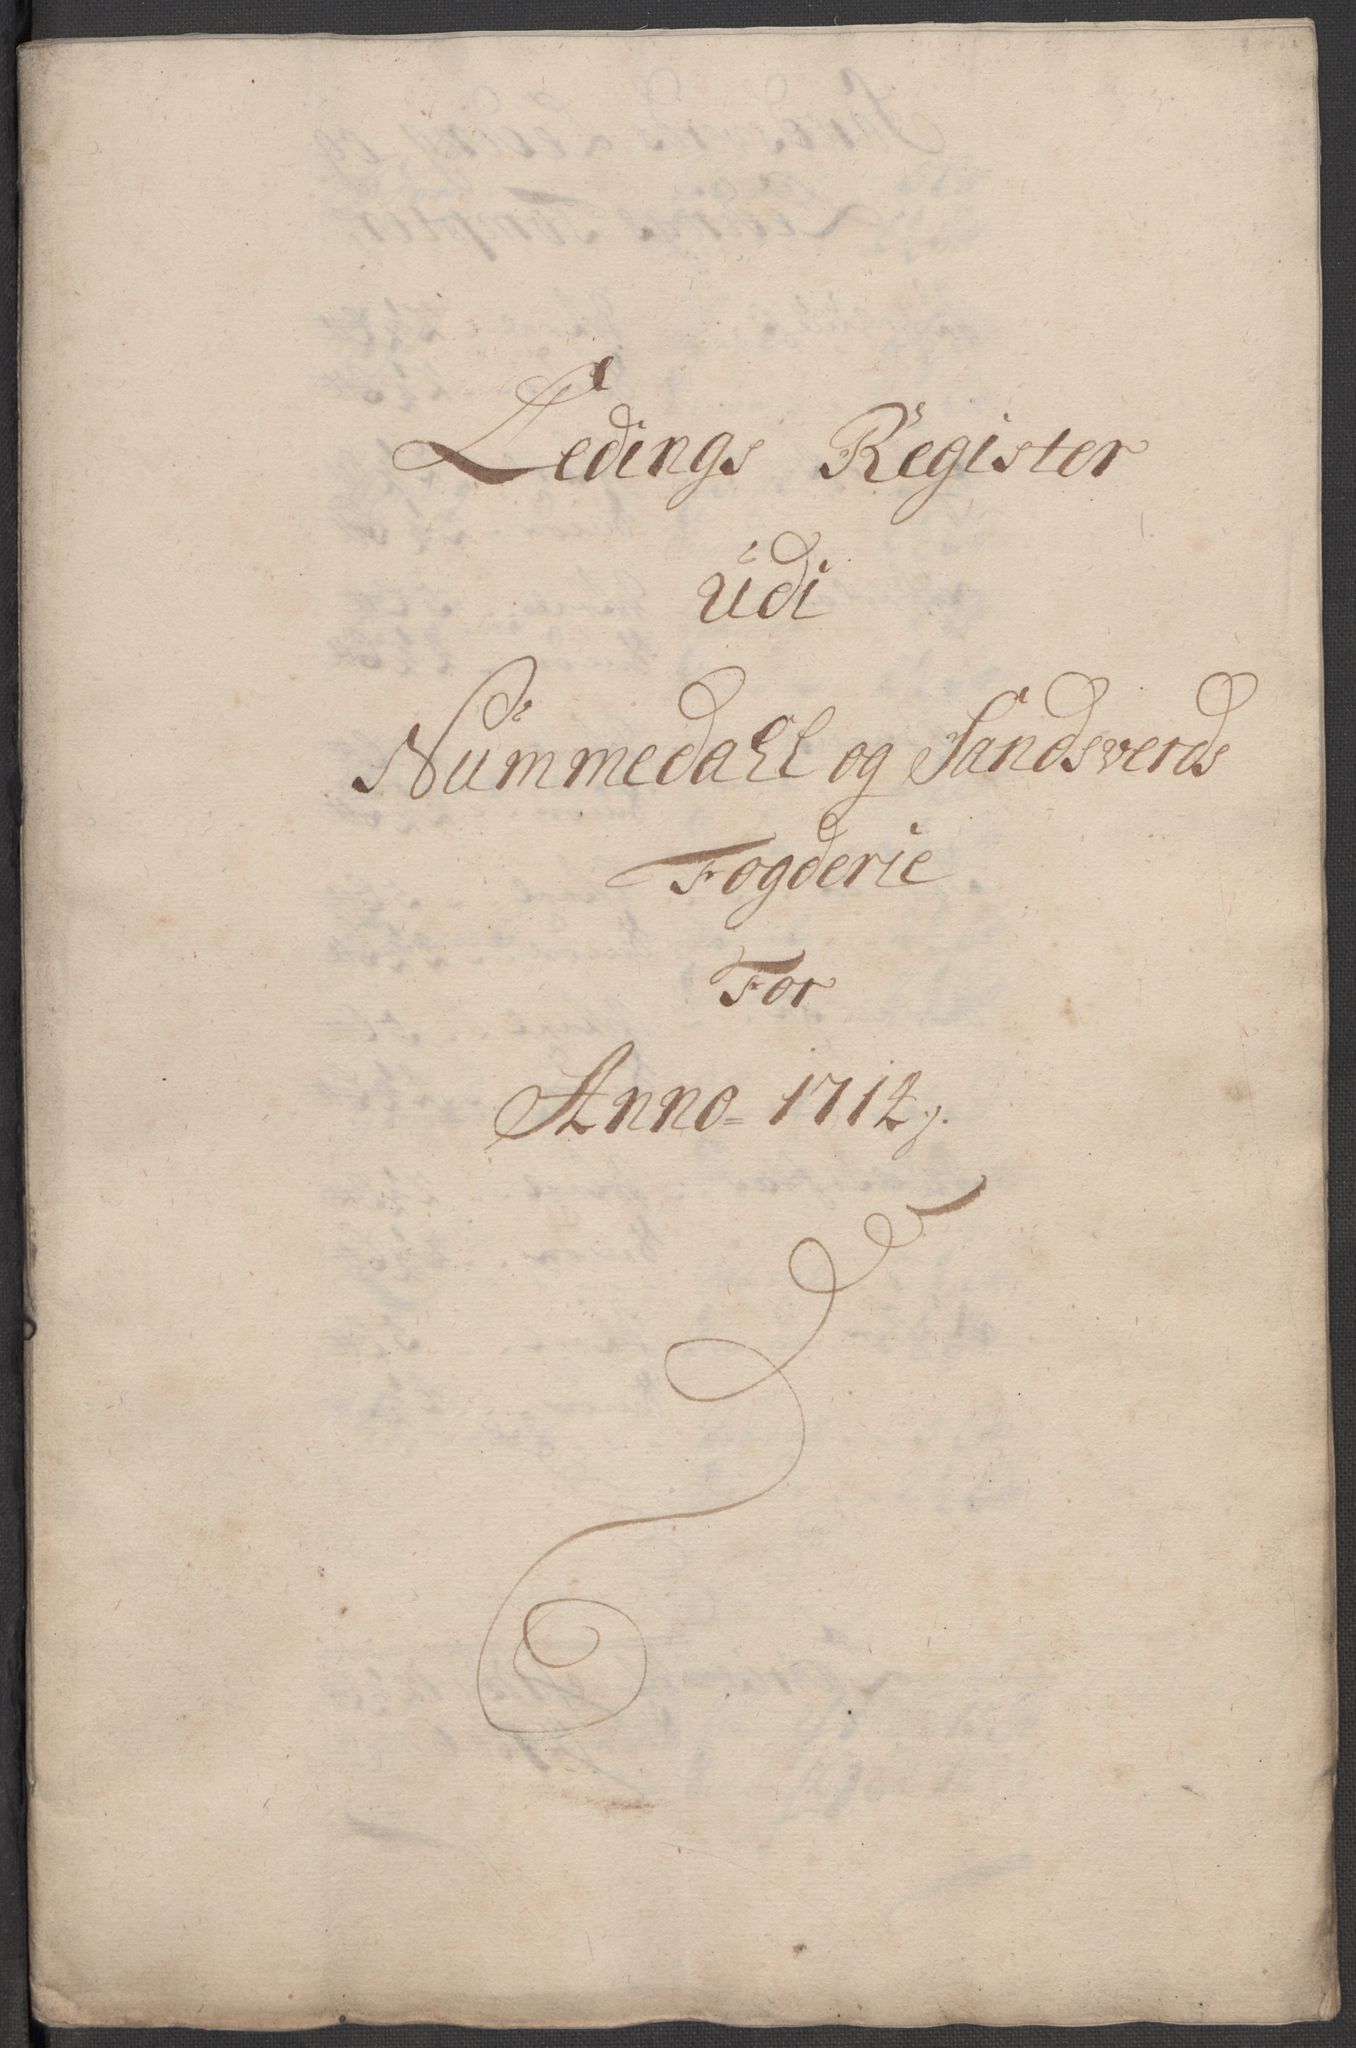 Ledings Register
udi
Nummedahl og Sandsverds
Fogderie
For
Anno 1714